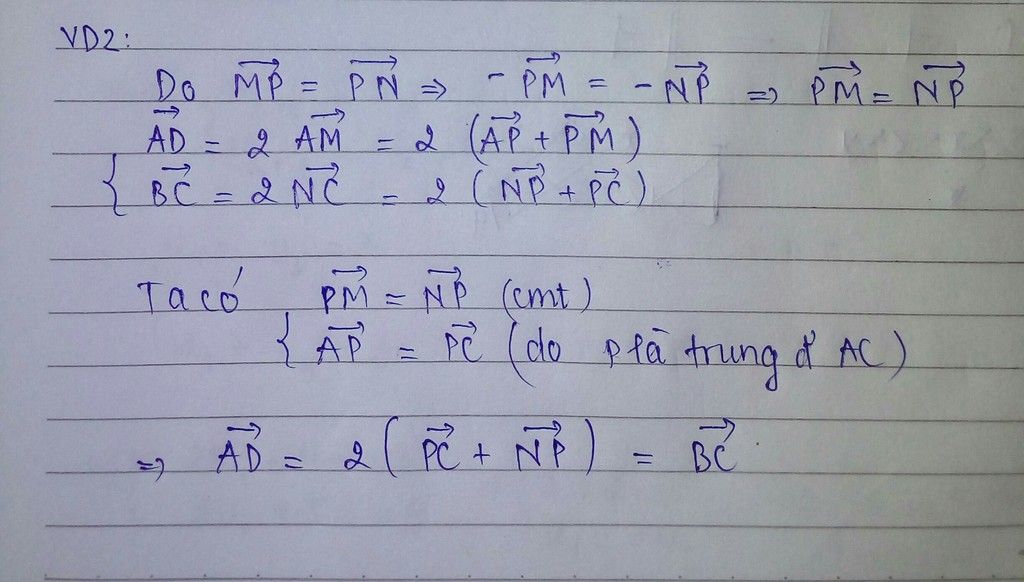 VD2:
Do $\overrightarrow{MP} = \overrightarrow{PN} \Rightarrow -\overrightarrow{PM} = -\overrightarrow{NP} \Rightarrow \overrightarrow{PM} = \overrightarrow{NP}$
$\overrightarrow{AD} = 2\overrightarrow{AM} = 2(\overrightarrow{AP} + \overrightarrow{PM})$
{ $\overrightarrow{BC} = 2\overrightarrow{NC} = 2(\overrightarrow{NP} + \overrightarrow{PC})$
Ta có $\overrightarrow{PM} = \overrightarrow{NP}$ (cmt)
{ $\overrightarrow{AP} = \overrightarrow{PC}$ (do P là trung đ' AC)
$\Rightarrow \overrightarrow{AD} = 2(\overrightarrow{PC} + \overrightarrow{NP}) = \overrightarrow{BC}$